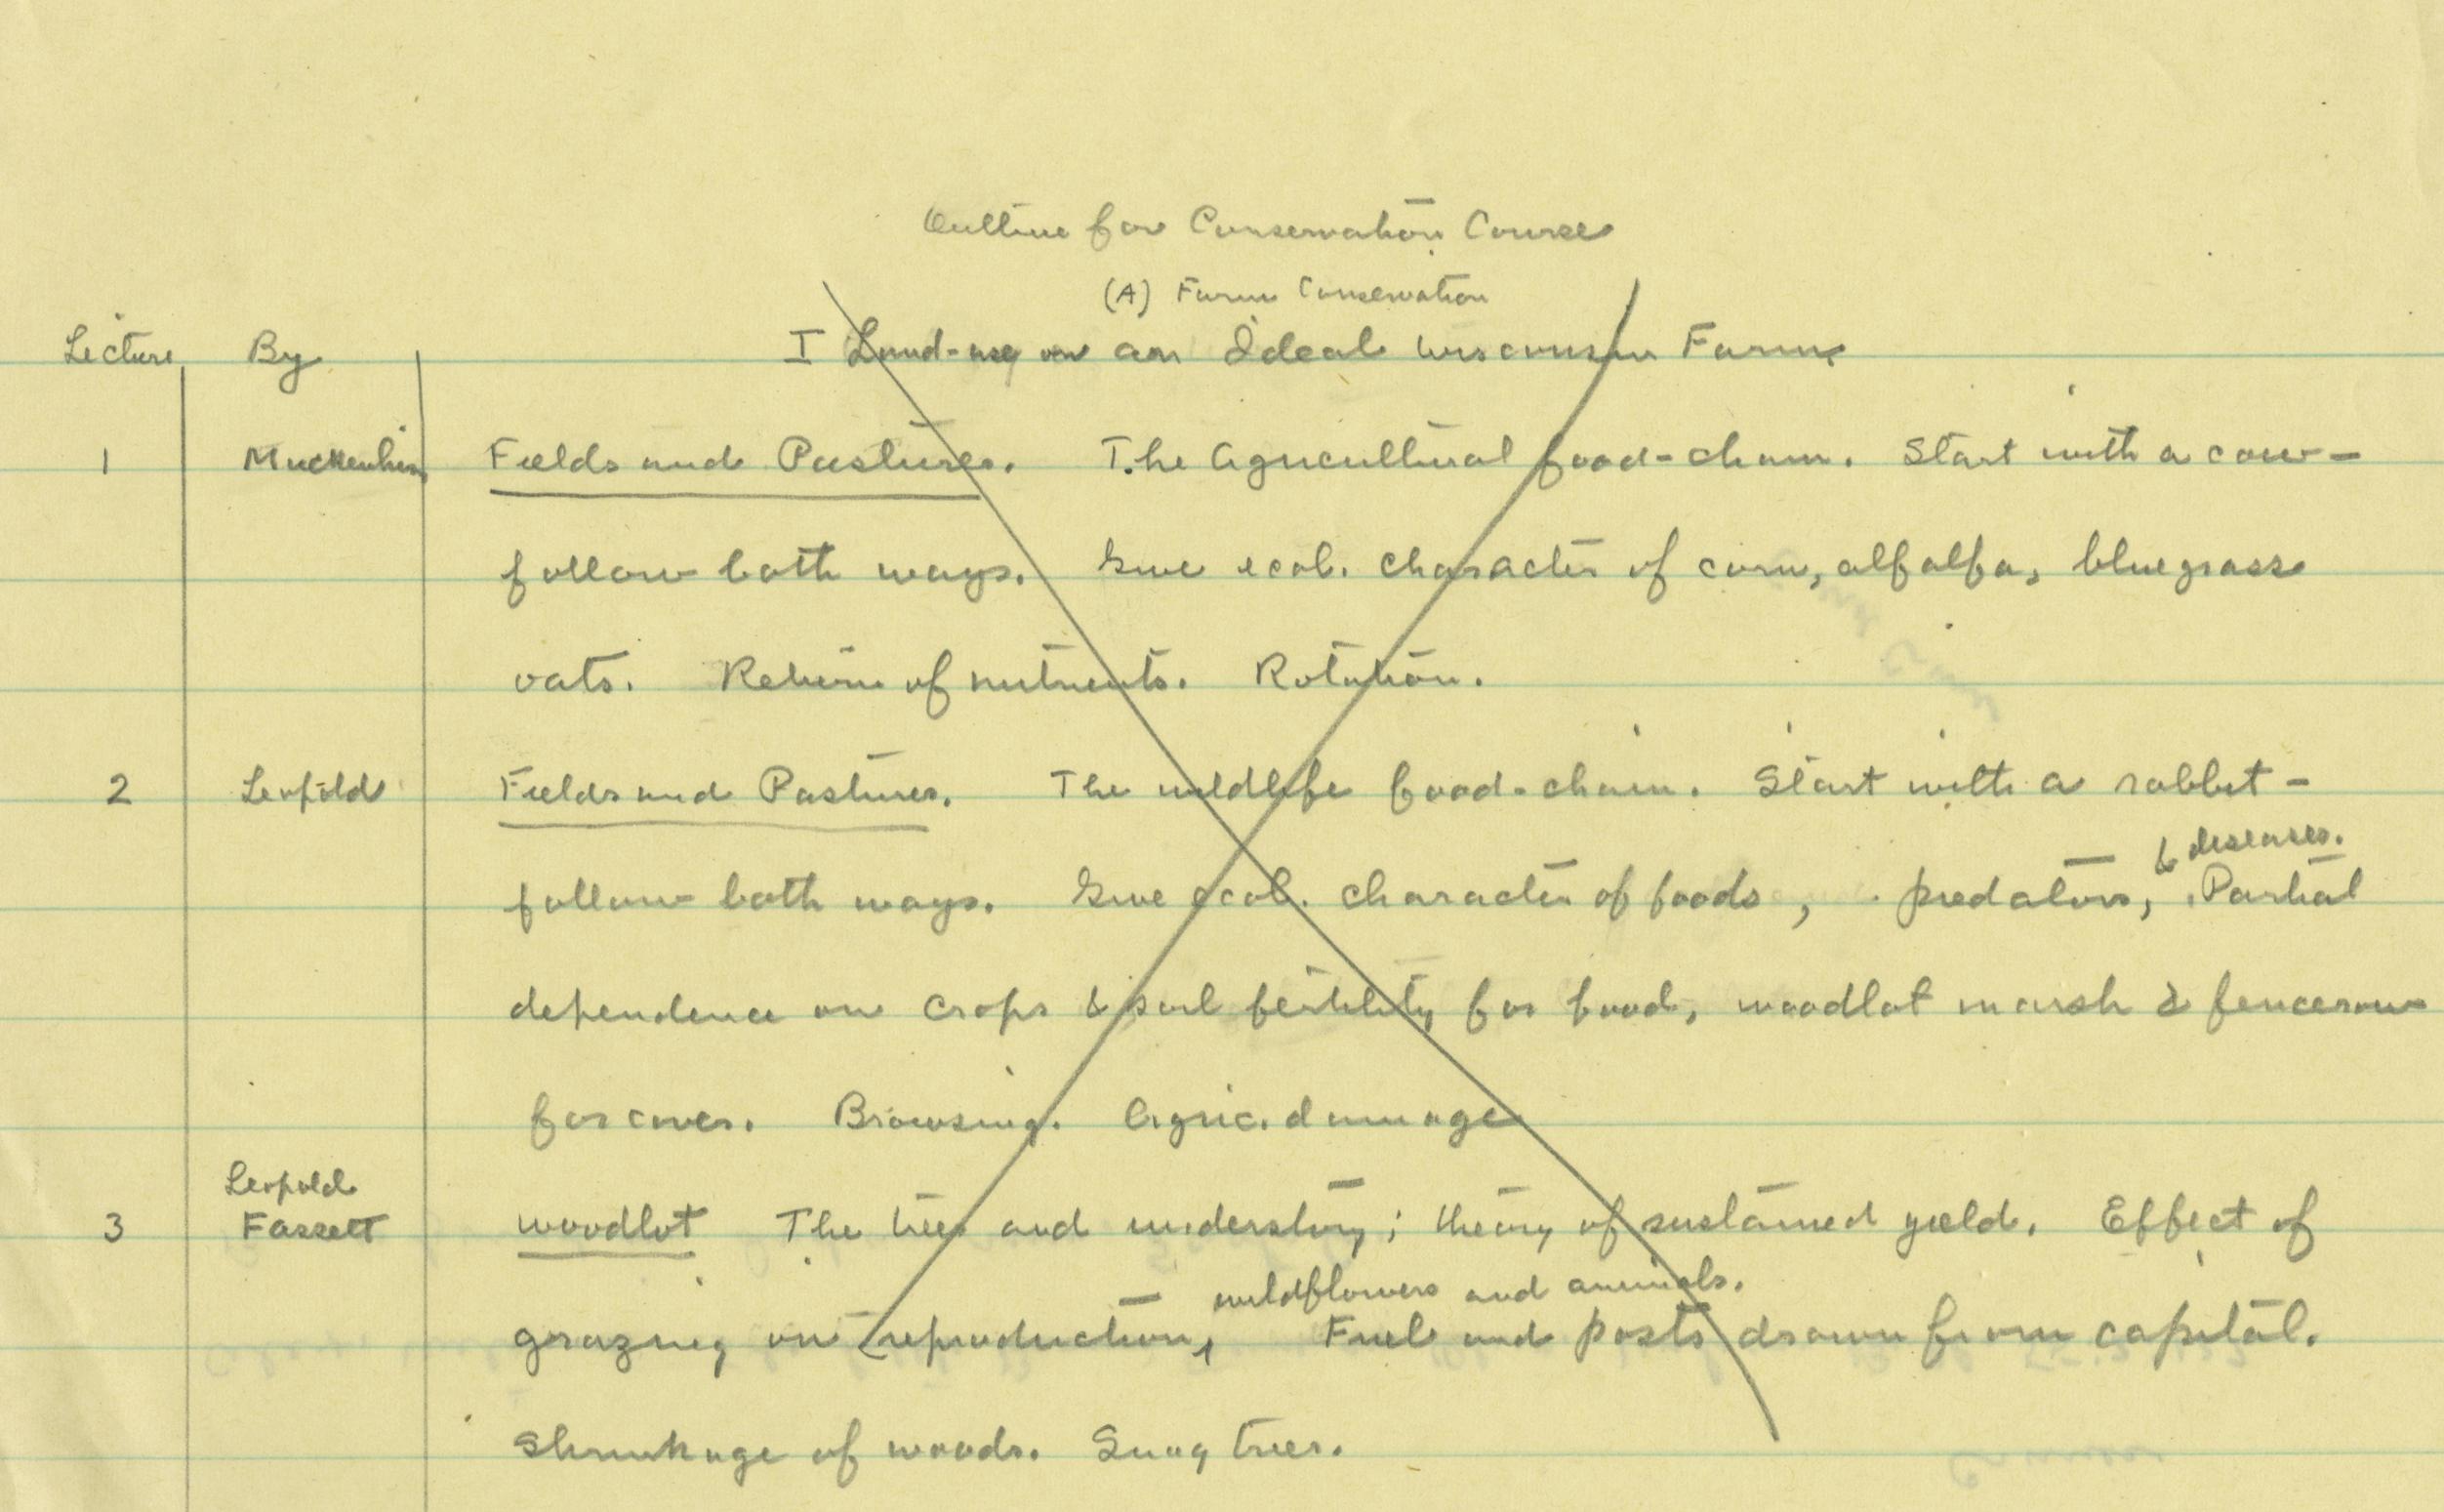 Outline for Conservation Course
(A) Farm Conservation
Lecture By I Land-use on an Ideal Wisconsin Farm
1 Muckenhirn Fields and Pastures. The Agricultural food-chain. Start with a cow -
follow both ways. Give ecol. character of corn, alfalfa, bluegrass
oats. Return of nutrients. Rotation.
2 Leopold Fields and Pastures. The wildlife food-chain. Start with a rabbit -
& diseases.
follow both ways. Give ecol. character of foods, predators, Partial
dependence on crops & soil fertility for food, woodlot marsh & fencerow
for cover. Browsing. Agric. damage
Leopold
3 Fassett Woodlot The trees and understory; theory of sustained yield. Effect of
wildflowers and animals.
grazing on reproduction, Fuel and posts drawn from capital.
Shrinkage of woods. Snag trees.